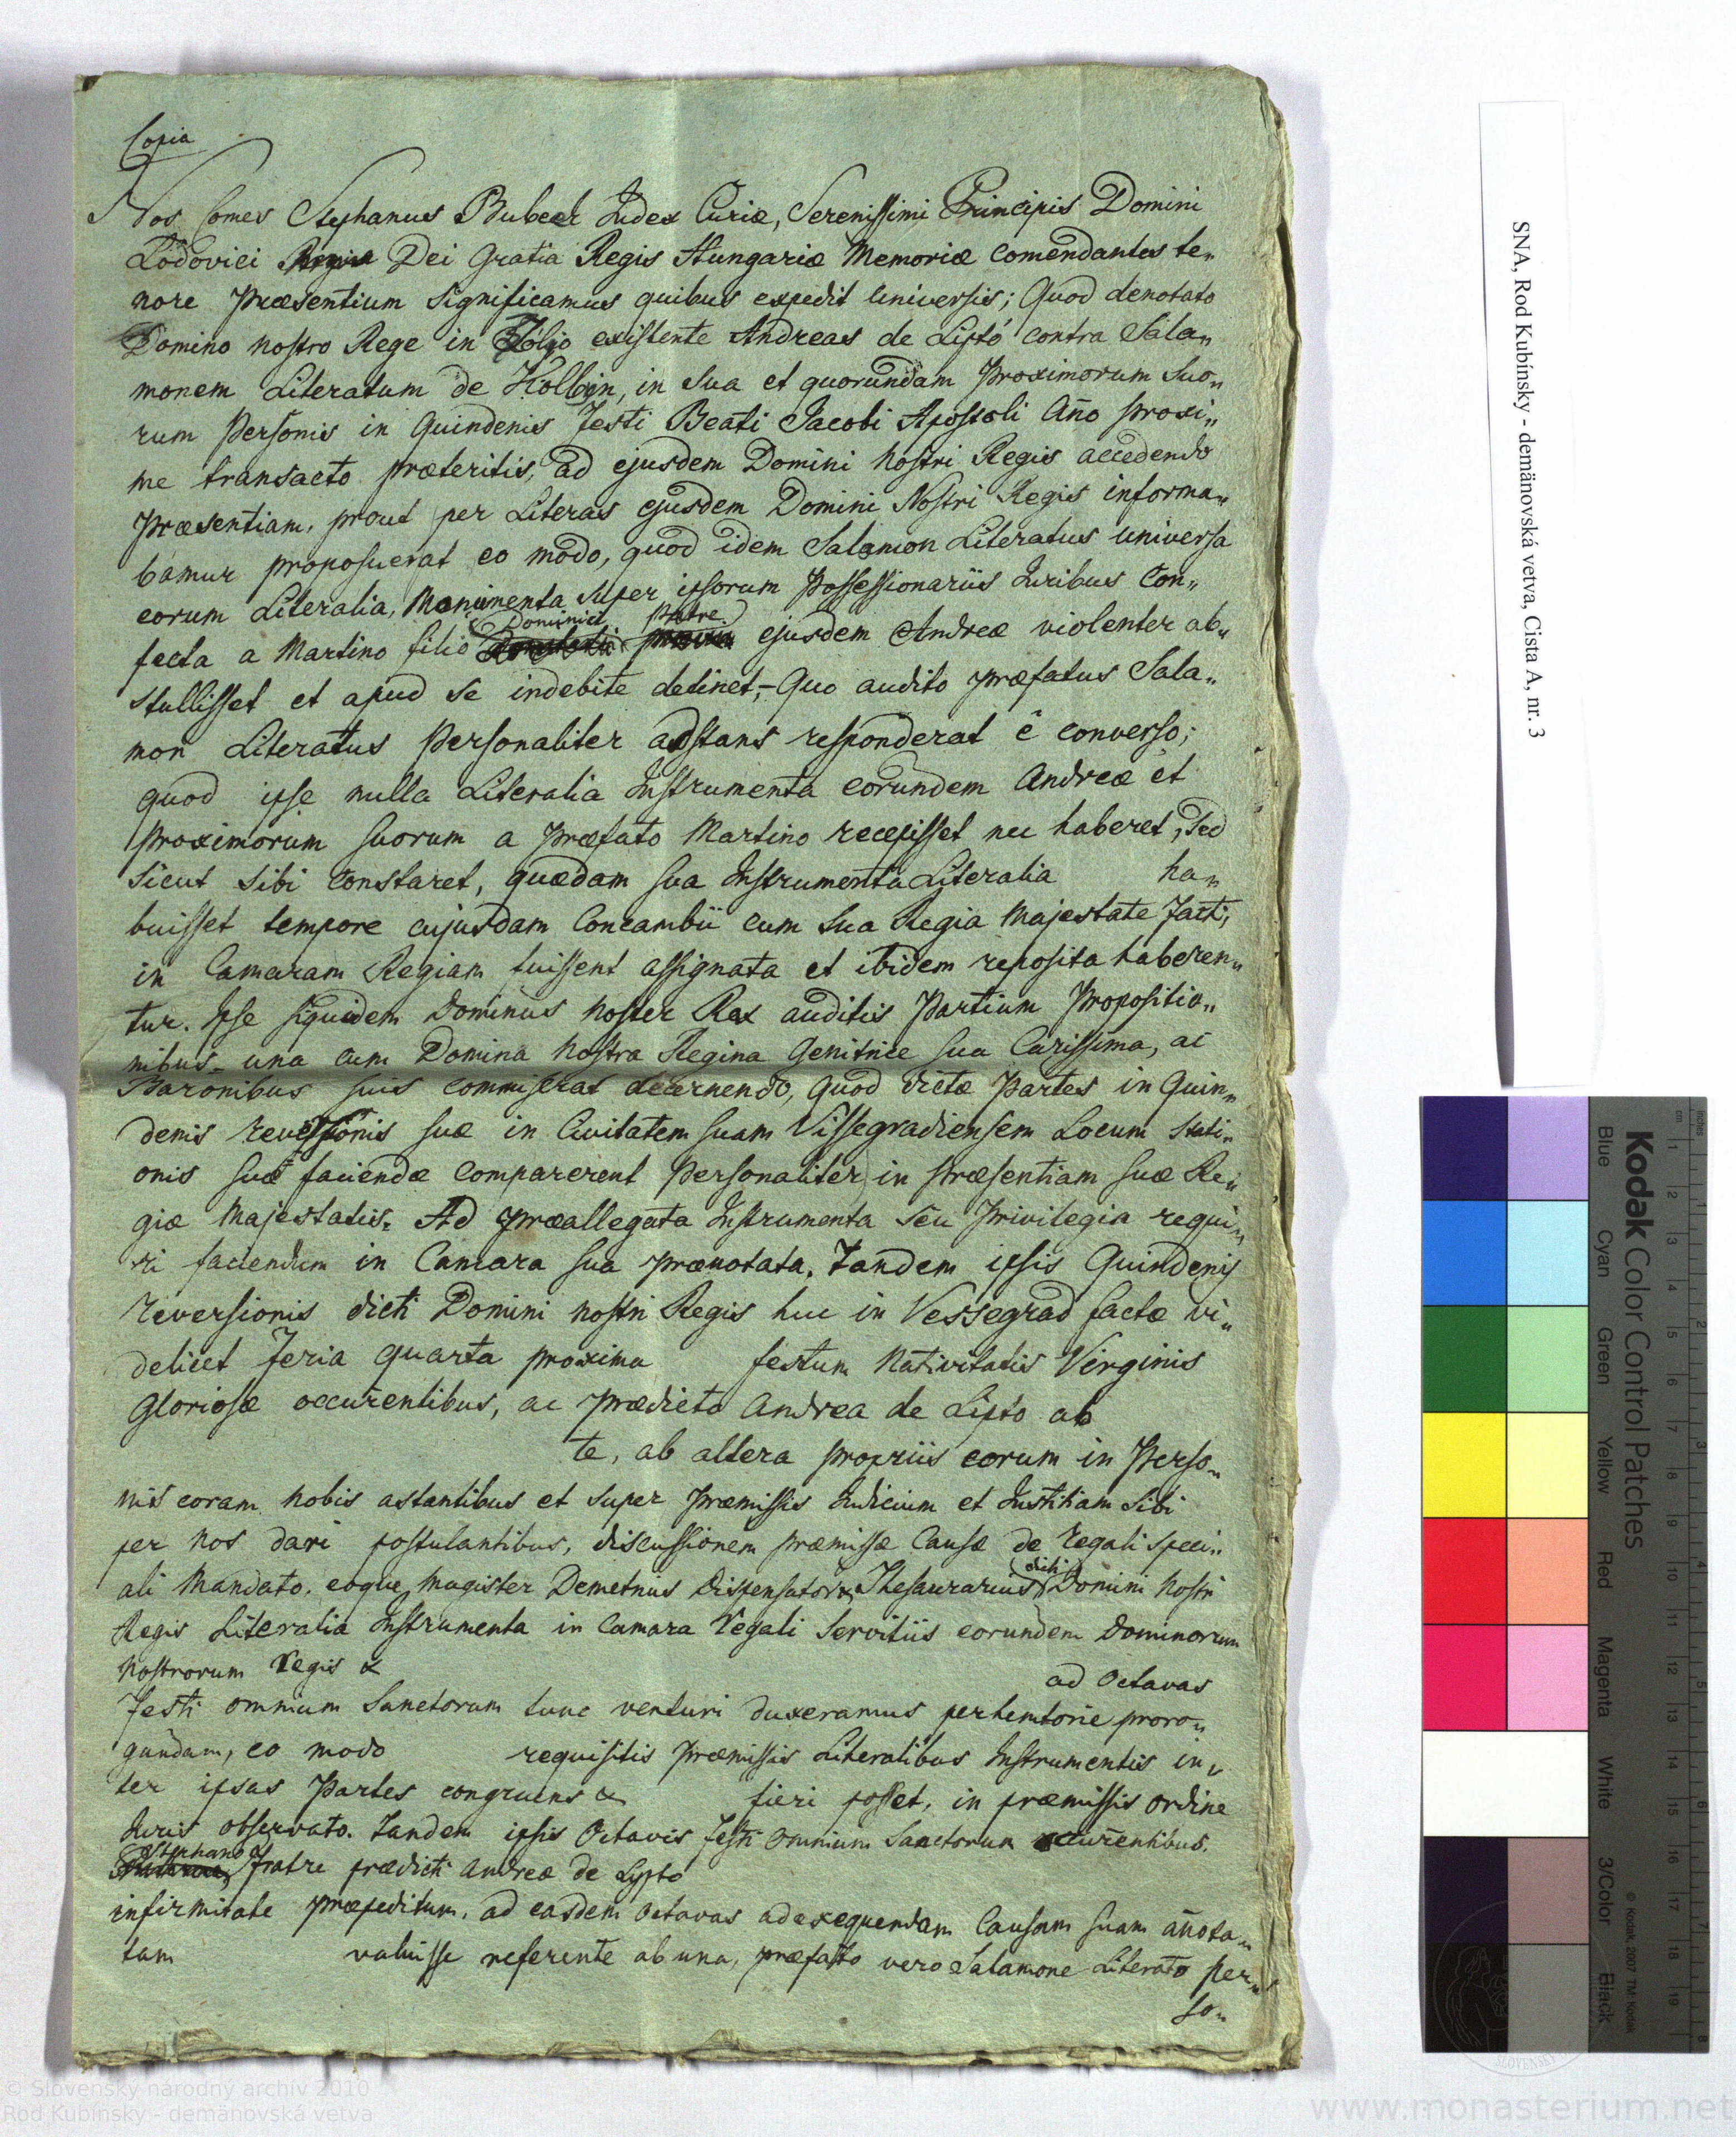 Copia
Nos Comes Stephanus Bubeek Judex Curiæ, Serenissimi Principis Domini
Lodovici Dei Gratia Regis Hungariæ Memoriæ Comendantes te„
nore Præsentium Significamus quibus expedit universis; Quod denotato
Domino nostro Rege in Zólio existente Andreas de Liptó contra Sala„
monem Literatum de in sua et quorundam Proximorum Suo„
rum Personis in Quindenis Festi Beati Jacobi Apostoli Año proxi„
me transacto præteritis, ad ejusdem Domini Nostri Regis accedendo
Præsentiam, prout per Literas ejusdem Domini Nostri Regis informa„
bamur proposuerat eo modo, quod idem Salamon Literatus universa
eorum Literalia, Monimenta super ipsorum Possessionariis Juribus Con„
fecta a Martino filio Dominici patre ejusdem Andreæ violenter ab„
stullisset et apud se indebite detinet,- Quo audito præfatus Sala„
mon Literatus Personaliter adstans responderat ê converso;
quod ipse nulla Literalia Instrumenta eorundem Andreæ et
Proximorum suorum a Præfato Martino recepisset nec haberet, sed
sicut sibi constaret, quædam sua Instrumenta Literalia ha„
buisset tempore cujusdam Concambii cum Sua Regia Majestate facti,
in Camaram Regiam fuissent assignata et ibidem reposita haberen„
tur. Ipse siquidem Dominus noster Rex auditis Partium Propositio„
nibus una cum Domina Nostra Regina Genitrice sua Carissima, ac
Baronibus suis commiserat decernendo, quod dictæ Partes in Quin„
denis reversionis suæ in Civitatem suam Vissegradiensem Locum Stati„
onis suæ faciendæ comparerent Personaliter in Præsentiam suæ Re„
giæ Majestatis. Ad præallegata Instrumenta seu Privilegia requi„
ri faciendum in Camara sua prænotata. Tandem ipsis Quindenis
reversionis dicti Domini nostri Regis huc in Vessegrad factæ vi„
delicet feria quarta proxima festum Nativitatis Virginis
Gloriosæ occurentibus, ac Prædicto Andrea de Lipto ab
te, ab altera propriis eorum in Perso„
nis coram nobis astantibus et super Præmissis Judicium et Justitiam sibi
per nos dari postulantibus, discussionem præmissæ Causæ de regali speci„
ali Mandato, eoque Magister Demetrius Dispensator & Thesaurarius dicti Domini Nostri
Regis Literalia Instrumenta in Camara regali Servitiis eorundem Dominorum
Nostrorum regis & ad Octavas
Festi omnium Sanctorum tunc venturi duxeramus perhemtorie proro„
gandam, eo modo requisitis Præmissis Literalibus Instrumentis in„
ter ipsas Partes congruens & fieri posset, in præmissis ordine
Juris observato. Tandem ipsis Octavis festi Omnium Sanctorum occurentibus.
Stephano fratre prædicti Andreæ de Lypto
infirmitate præpeditum, ad easdem Octavas ad exequendam Causam suam añota„
tam valuisse referente ab una, præfato vero Salamone Literato per„
so„
SNA, Rod Kubínsky - demänovská vetva, Cista A, nr. 3
Kodak Color Control Patches
Blue Cyan Green Yellow Red Magenta White 3/Color Black
© Kodak, 2007 TM: Kodak
© Slovenský národný archív 2010
Rod Kubínsky - demänovská vetva
www.monasterium.net